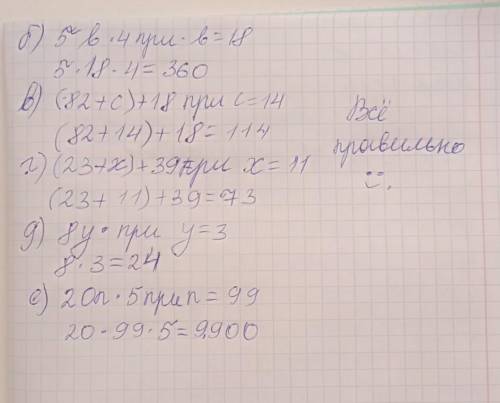 б) 5 b · 4 при · b = 18
5 · 18 · 4 = 360
в) (82 + c) + 18 при c = 14
(82 + 14) + 18 = 114
г) (23 + x) + 39 при x = 11
(23 + 11) + 39 = 73
д) 8y · при y = 3
8 · 3 = 24
е) 20n · 5 при n = 99
20 · 99 · 5 = 9900
Всё
правильно